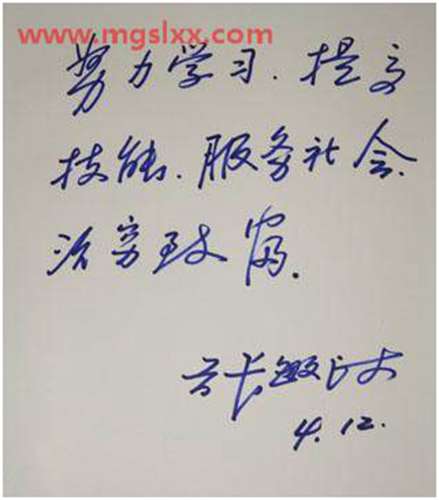 www.mgslxx.com
努力学习.提高
技能.服务社会.
治穷致富.
张
4.12.